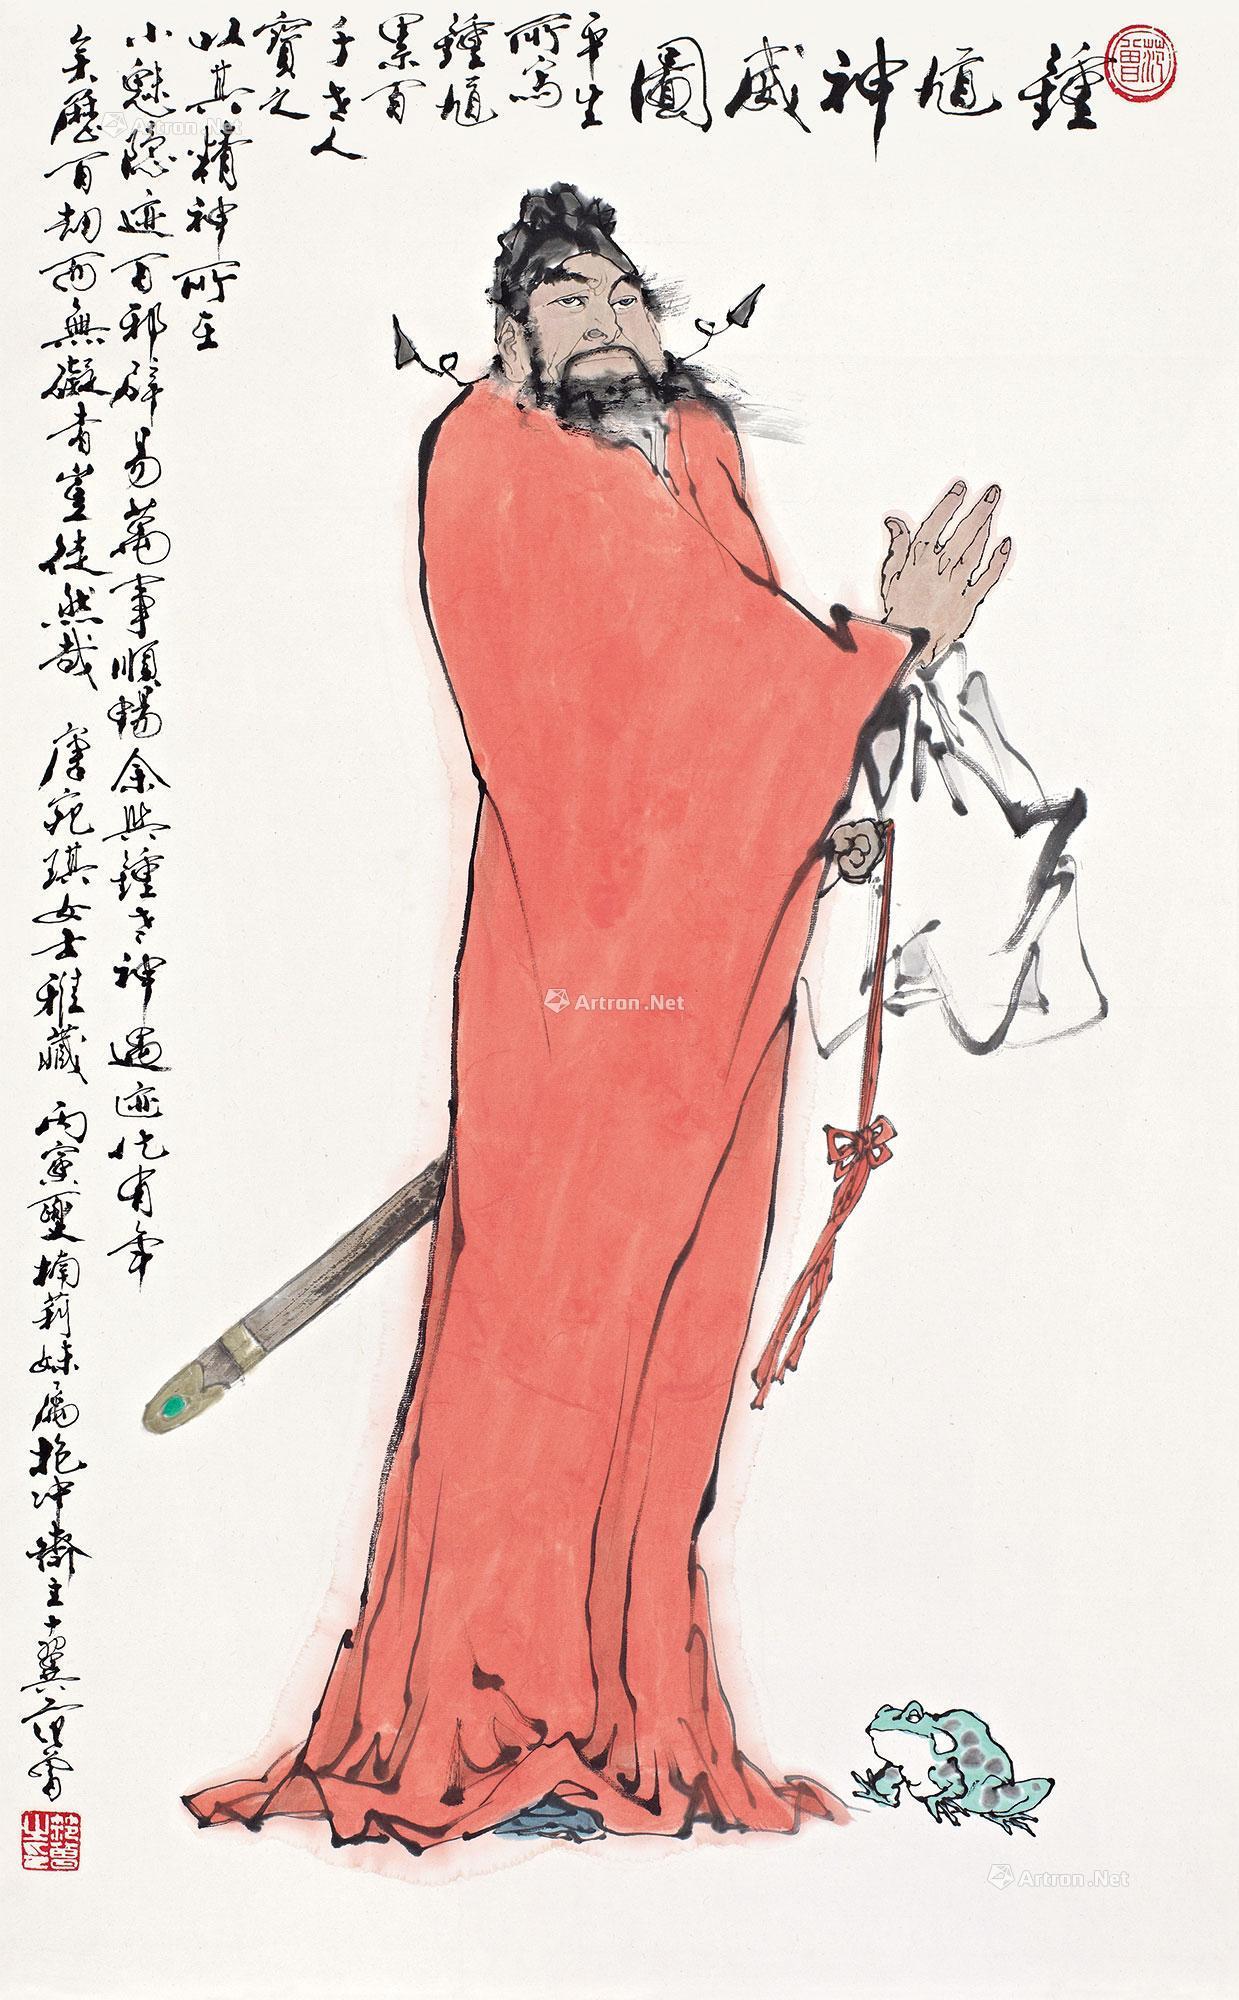 鍾馗神威圖
平生
所寫
鍾馗
累百
千世人
寶之
以其精神所至
小魅隱迹百邪辟易萬事順暢余與鍾老神遇迹化有年
矣歷百劫而無礙者豈徒然哉 唐宛琪女士雅藏 丙寅 楠莉妹屬抱冲齋主十翼范曾
范曾
Artron.Net
Artron.Net
Artron.Net